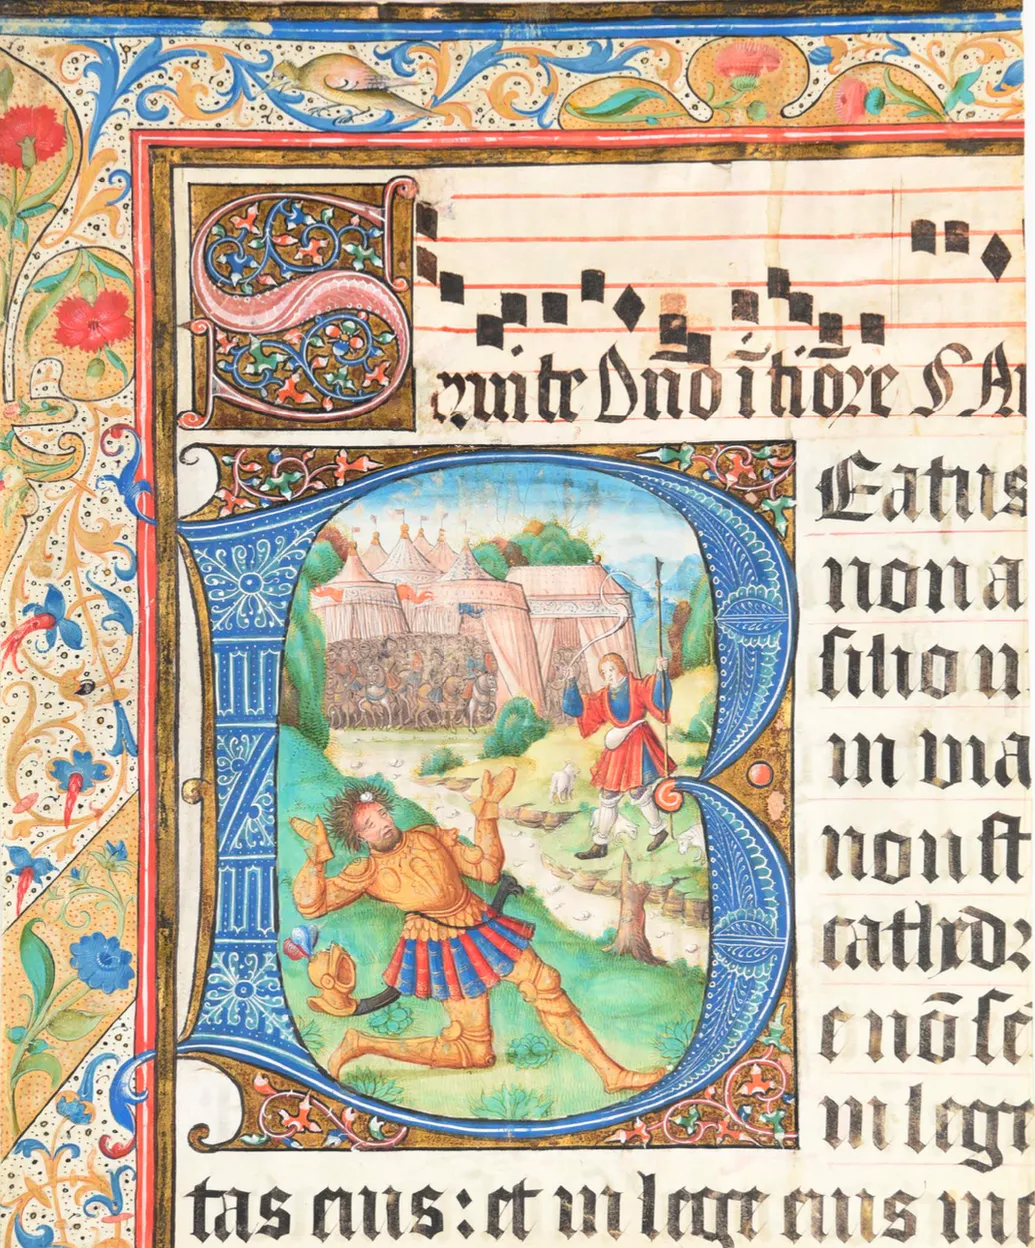 Seruite Dño ĩ tiõre S
BEatus
non a
ſilio
in uia
non ſt
cathedꝛ
e nõ ſe
in lege
tas eius : et in lege eius me